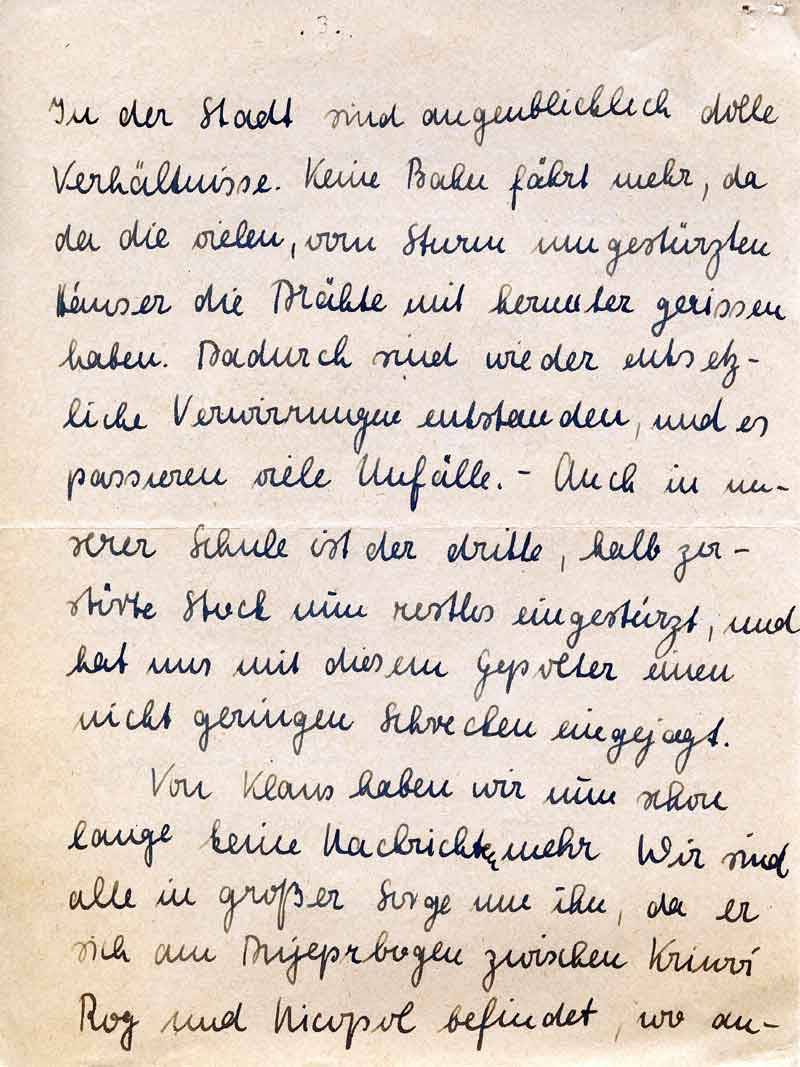 . 3. .
In der Stadt sind augenblicklich dolle
Verhältnisse. Keine Bahn fährt mehr, da
da die vielen, vom Sturm umgestürzten
Häuser die Drähte mit herunter gerissen
haben. Dadurch sind wieder entsetz-
liche Verwirrungen entstanden, und es
passieren viele Unfälle. - Auch in un-
serer Schule ist der dritte, halb zer-
störte Stock nun restlos eingestürzt, und
hat uns mit diesem Gepolter einen
nicht geringen Schrecken eingejagt.
Von Klaus haben wir nun schon
lange keine Nachrichten mehr Wir sind
alle in großer Sorge um ihn, da er
sich am Dnjeprbogen zwischen Kriwoi
Rog und Nicopol befindet, wo au-